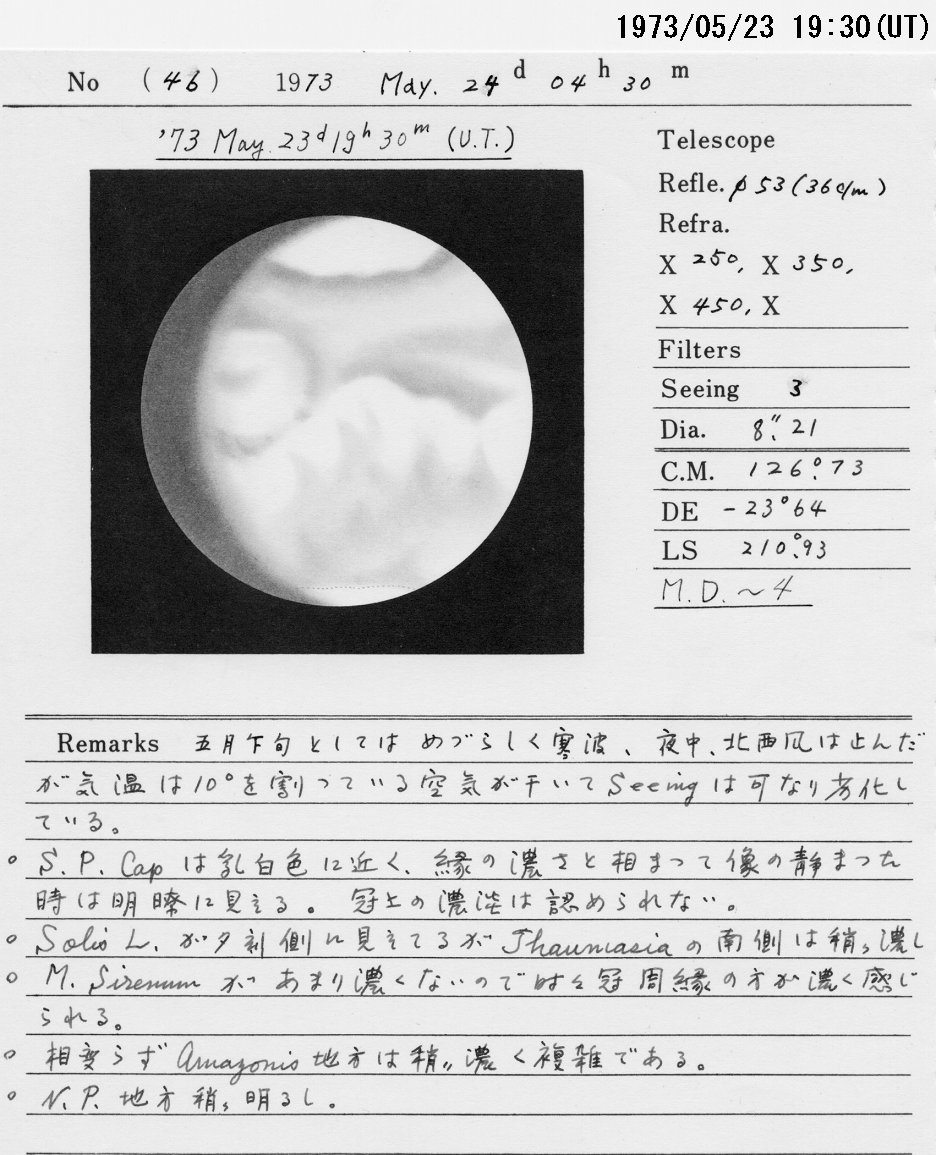 1973/05/23 19:30(UT)
No (46) 1973 May. 24d 04h 30m
'73 May 23d 19h 30m (U.T.)
Telescope
Refle. φ 53 (36c/m)
Refra.
X 250, X 350,
X 450, X
Filters
Seeing 3
Dia. 8".21
C.M. 126°.73
DE -23°64
LS 210°.93
M.D. ~4
Remarks 五月下旬としてはめづらしく寒波、夜中、北西風は止んだ
が気温は10°を割っている空気が干いてSeeingは可なり劣化し
ている。
○ S.P. Capは乳白色に近く、縁の濃さと相まって像の静まった
時は明瞭に見える。 冠上の濃淡は認められない。
○ Solis L.が夕刻側に見えてるがThaumasiaの南側は稍々濃し
○ M. Sirenumがあまり濃くないので時々冠周縁の方が濃く感じ
られる。
○ 相変らずAmazonis地方は稍々濃く複雑である。
○ N.P.地方稍々明るし。